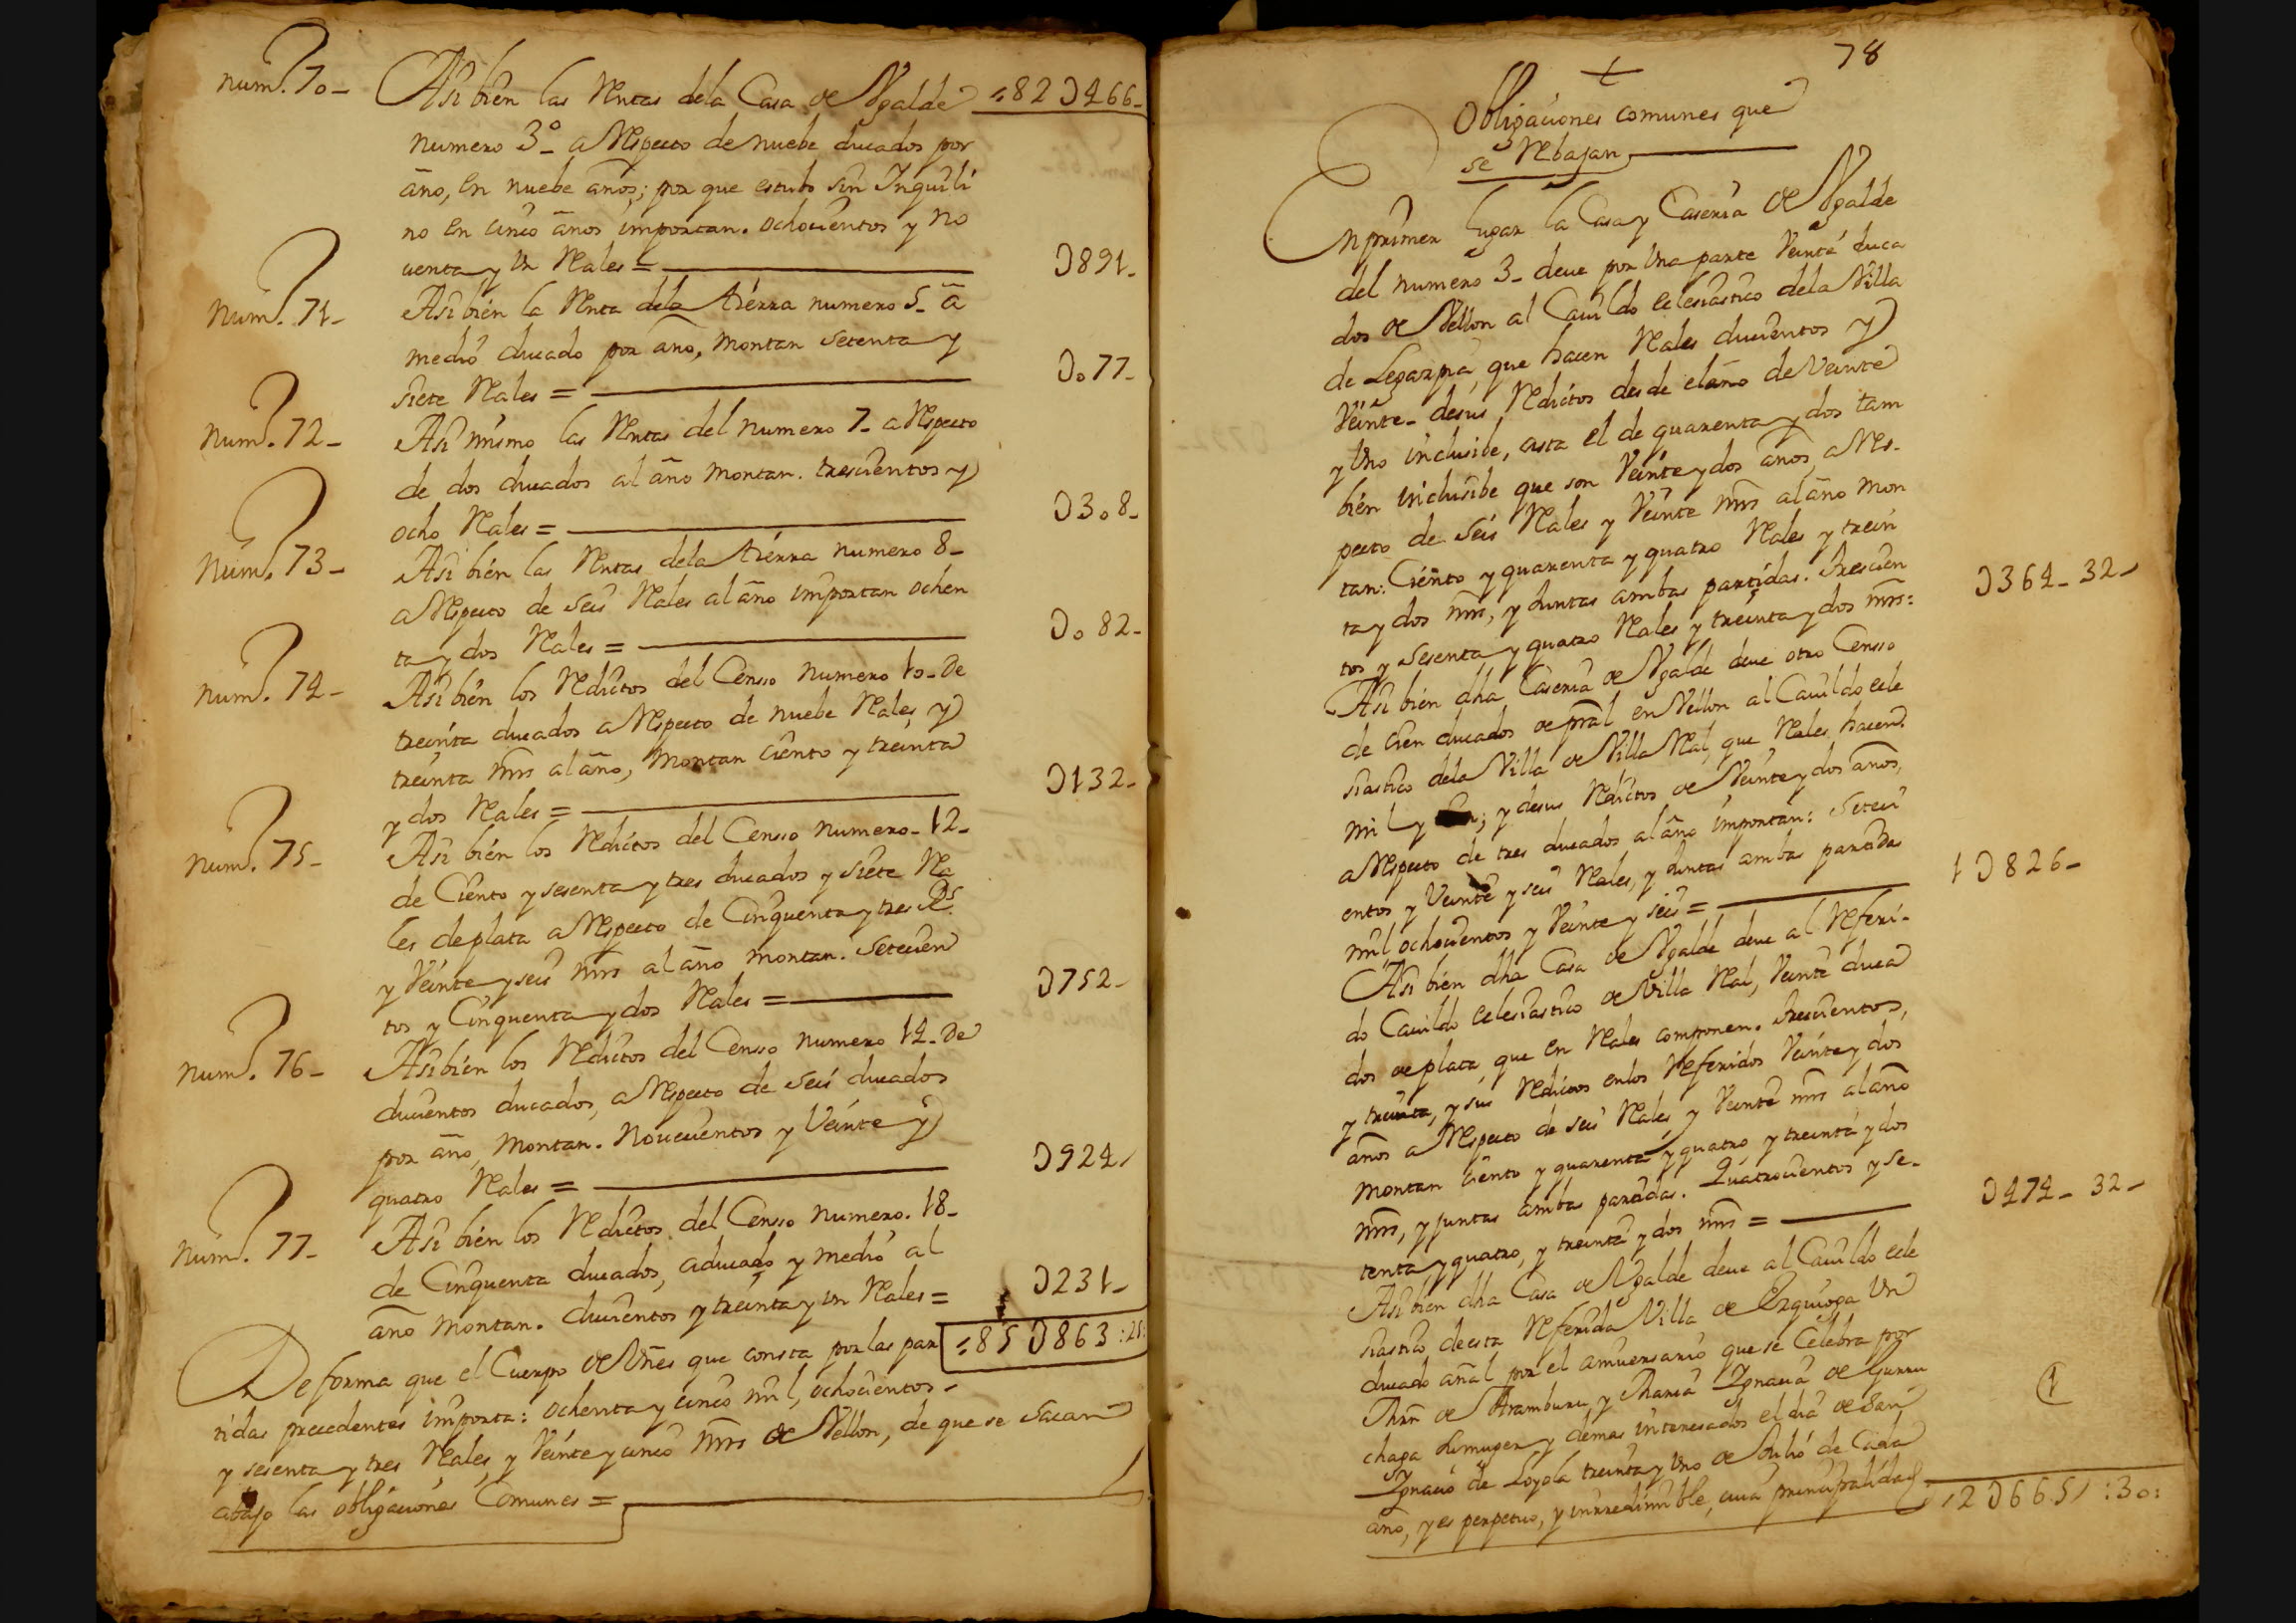 num.º 70_ Asi bien las Rentas dela Casa de Vgalde =82U466_
numero 3º_ a Respecto de nuebe ducados por
año, en nuebe años; por que estubo sin Inquili
no en cinco años importan. ochocientos y no
uenta y Vn Reales = U891_
num.º 71_ Asi bien la Renta dela tierra numero 5_ a
medio ducado por año, montan setenta y
siete Reales = Uo77_
num.º 72_ Asi mismo las Rentas del numero 7_ a Respecto
de dos ducados al año montan. trescientos y
ocho Reales = U3o8_
num.º 73_ Asi bien las Rentas dela tierra numero 8_
a Respecto de seis Reales al año importan ochen
ta y dos Reales = Uo82_
num.º 74_ Asi bien los Reditos del Censso numero 10_ De
treinta ducados a Respecto de nuebe Reales, y
treinta mrs al año, montan ciento y treinta
y dos Reales = U132_
num.º 75_ Asi bien los Reditos del Censso numero_ 12_
de Ciento y sesenta y tres ducados y siete Rea
les de plata a Respecto de Cinquenta y tres Rs
y Veinte y seis mrs al año montan. setecien
tos y Cinquenta y dos Reales = U752_
num.º 76_ Asi bien los Reditos del Censso numero 14_ De
ducientos ducados, a Respecto de seis ducados
por año, montan. Nouecientos y Veinte y
quatro Reales = U924
num.º 77_ Asi bien los Reditos del Censso numero. 18_
de Cinquenta ducados, a ducado y medio al
año montan. ducientos y treinta y Vn Reales = U231_
De forma que el Cuerpo de Vnes que consta por las par =85U863:25:
tidas precedentes importa: ochenta y cinco mil, ochocientos
y sesenta y tres Reales, y Veinte y cinco mrs de Vellon, de que se sacan
abajo las obligaciones Comunes =
78
Obligaciones comunes que
se Rebajan
En primer lugar la Casa y Caseria de Vgalde
del numero 3_ deue por Vna parte Veinte duca
dos de Vellon al Cauildo eclesiastico dela Villa
de Legazpia, que hacen Reales ducientos y
Veinte_ desus Reditos desde el año de Veinte
y Vno inclusibe, asta el de quarenta y dos tam
bien inclusibe que son Veinte y dos años a Res_
pecto de seis Reales y Veinte mrs al año mon
tan: Ciento y quarenta y quatro Reales y trein
ta y dos mrs, y Juntas ambas partidas. trescien
tos y sesenta y quatro Reales y treinta y dos mrs: U364_32_
Asi bien dha Caseria de Vgalde deue otro Censso
de cien ducados de pral en Vellon al Cauildo ecle
siastico dela Villa de Villa Real, que Reales hacen
mil y ; y desus Reditos de Veinte y dos años,
a Respecto de tres ducados al año importan: Seteci
entos y Veinte y seis Reales, y Juntas ambas partidas
mil ochocientos y Veinte y seis = 1U826_
Asi bien dha Casa de Vgalde deue al Referi_
do Cauildo eclesiastico de Villa Real, Veinte duca
dos de plata, que en Reales componen. trescientos,
y treinta, y sus Reditos enlos Referidos Veinte y dos
años a Respecto de seis Reales, y Veinte mrs al año
montan ciento y quarenta y quatro, y treinta y dos
mrs, y juntas ambas partidas. Quatrocientos y se_
tenta y quatro, y treinta y dos mrs = U474_32_
Asi bien dha Casa de Vgalde deue al Cauildo ecle
siastico de esta Referida Villa de Ezquioga Vn
ducado añal por el aniuersario que se Celebra por
Mrn de Aramburu, y Maria Ignacia de Gurru
chaga su muger y demas interesados el dia de San
Ignacio de Loyola treinta y Vno de Julio de Cada
año, y es perpetuo, y inrredimible, cuia principalidad 2U665:30: